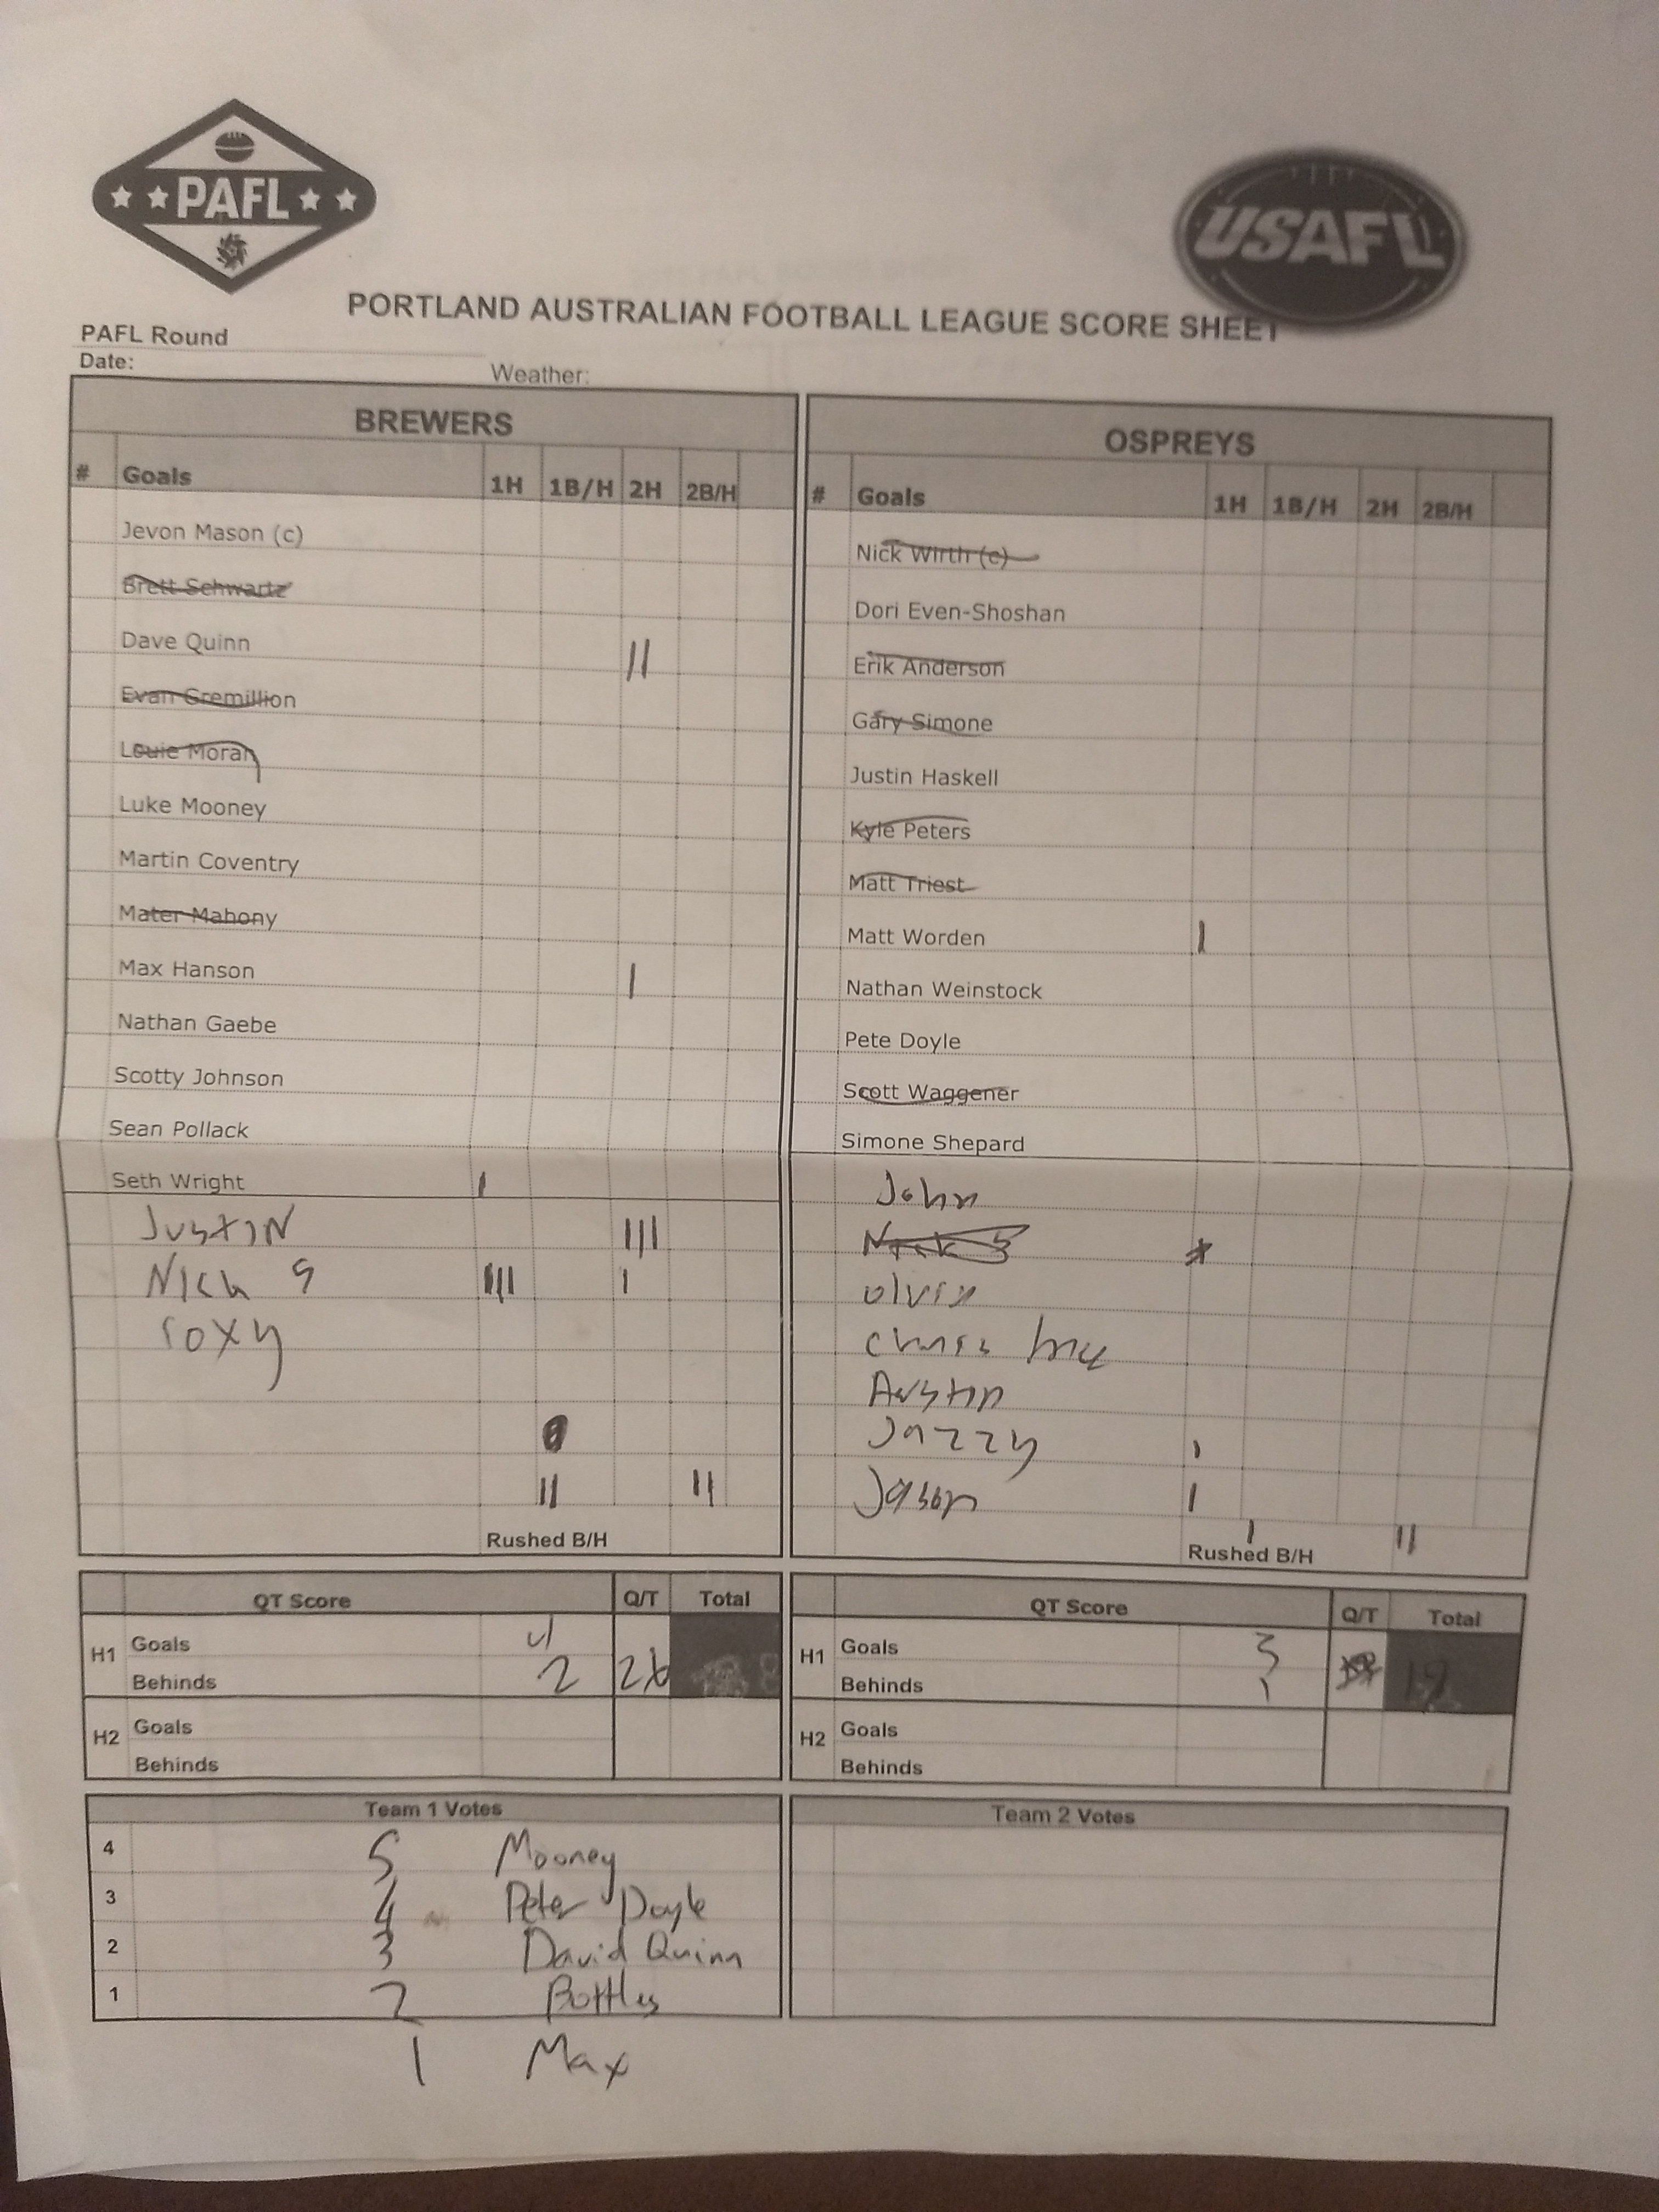 PAFL
USAFL
PORTLAND AUSTRALIAN FOOTBALL LEAGUE SCORE SHEET
PAFL Round
Date:
Weather:
BREWERS
# Goals 1H 1B/H 2H 2B/H
Jevon Mason (c)
Brett Schwartz
Dave Quinn ||
Evan Gremillion
Louie Moran
Luke Mooney
Martin Coventry
Mater Mahony
Max Hanson |
Nathan Gaebe
Scotty Johnson
Sean Pollack
Seth Wright |
JUSTIN |||
Nick S |||| |
roxy
|| ||
Rushed B/H
OSPREYS
# Goals 1H 1B/H 2H 2B/H
Nick Wirth (c)
Dori Even-Shoshan
Erik Anderson
Gary Simone
Justin Haskell
Kyle Peters
Matt Triest
Matt Worden |
Nathan Weinstock
Pete Doyle
Scott Waggener
Simone Shepard
John
Austin
Jazzy |
Jason |
| ||
Rushed B/H
QT Score Q/T Total
H1 Goals 4
Behinds 2 26
H2 Goals
Behinds
QT Score Q/T Total
H1 Goals 3
Behinds 1 19
H2 Goals
Behinds
Team 1 Votes
4 5 Mooney
3 4 Peter Doyle
2 3 David Quinn
1 2 Bottles
1 Max
Team 2 Votes